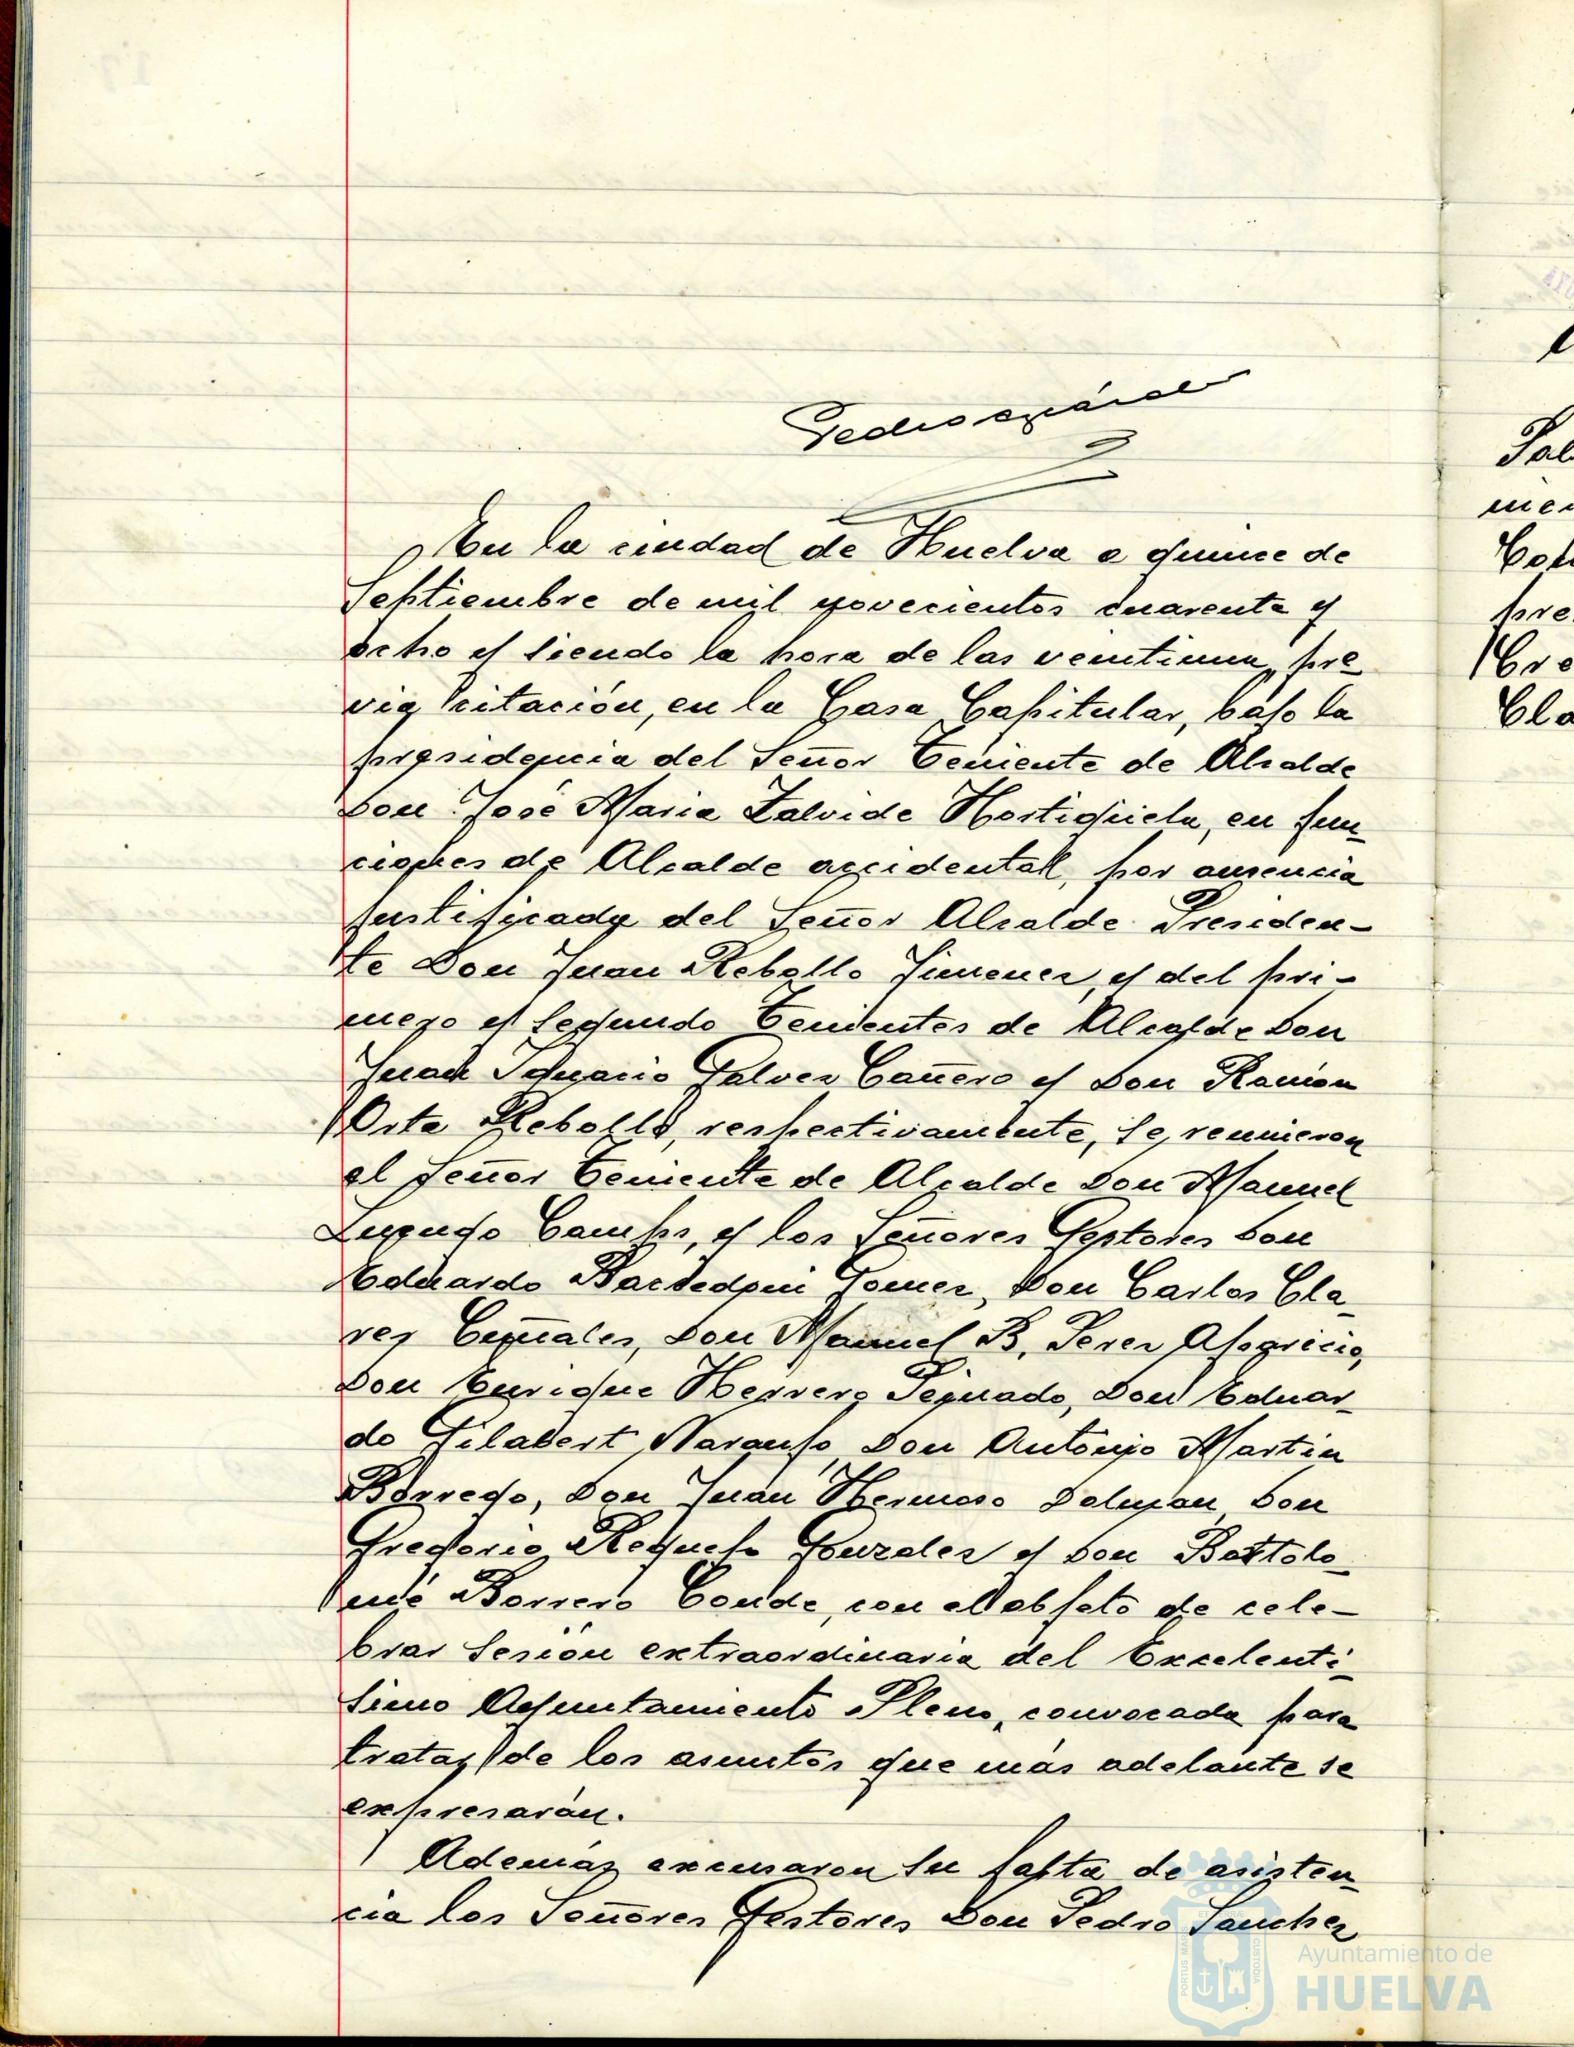 En la ciudad de Huelva a quince de
Septiembre de mil novecientos cuarenta y
ocho y siendo la hora de las veintiuna, pre-
via citación, en la Casa Capitular, bajo la
presidencia del Señor Teniente de Alcalde
Don José Maria Zalvide Hortigüela, en fun-
ciones de Alcalde accidental, por ausencia
justificada del Señor Alcalde Presiden-
te Don Juan Rebollo Jimenez, y del pri-
mero y segundo Tenientes de Alcalde Don
Juan Ignacio Galvez Cañero y Don Ramón
Orta Rebollo, respectivamente, se reunieron
el Señor Teniente de Alcalde Don Manuel
y los Señores Gestores Don
Eduardo Gomez, Don Carlos Cla-
res Don Manuel B. Perez Aparicio,
Don Enrique Herrero Peguado, Don Eduar-
do Gilabert Naranjo, Don Antonio Martin
Borrego, Don Juan Hermoso Don
Gregorio Gonzalez y Don Bartolo-
mé Borrero Conde, con el objeto de cele-
brar sesión extraordinaria del Excelenti-
simo Ayuntamiento Pleno, convocada para
tratar de los asuntos que más adelante se
expresarán.
Además excusaron su falta de asisten-
cia los Señores Gestores Don Pedro Sanchez
Ayuntamiento de
HUELVA